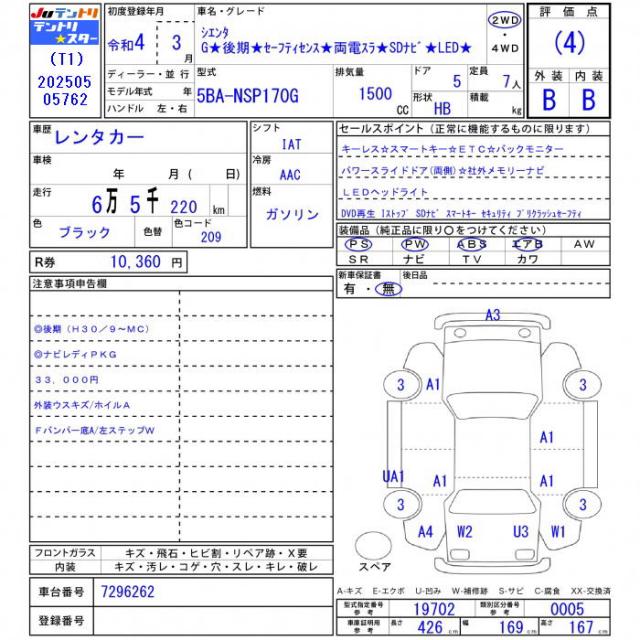 JUテントリ
テントリ
★スター
(T1)
202505
05762
初度登録年月
令和4 年 3 月
ディーラー・並 行
モデル年式 年
ハンドル 左・右
車名・グレード
シエンタ
G★後期★セーフティセンス★両電スラ★SDナビ★LED★
2WD
・
4WD
型式
5BA-NSP170G
排気量
1500 CC
ドア
5
形状
HB
定員
7人
積載
kg
評 価 点
(4)
外 装 内 装
B B
車歴
レンタカー
車検
年 月 ( 日)
走行
6万 5千 220 km
色
ブラック
色替
色コード
209
シフト
IAT
冷房
AAC
燃料
ガソリン
セールスポイント (正常に機能するものに限ります)
キーレス☆スマートキー☆ETC☆バックモニター
パワースライドドア(両側)☆社外メモリーナビ
LEDヘッドライト
DVD再生 Iストップ SDナビ スマートキー セキュリティ プリクラッシュセーフティ
装備品 (純正品に限り○をつけてください)
PS PW ABS エアB AW
SR ナビ TV カワ
R券 10,360 円
新車保証書
有・無
後日品
注意事項申告欄
◎後期(H30/9~MC)
◎ナビレディPKG
33,000円
外装ウスキズ/ホイルA
Fバンパー底A/左ステップW
A3
3 A1 3
A1
UA1 A1 A1
3 3
A4 W2 U3 W1
スペア
フロントガラス キズ・飛石・ヒビ割・リペア跡・X要
内装 キズ・汚レ・コゲ・穴・スレ・キレ・破レ
車台番号 7296262
登録番号
A-キズ E-エクボ U-凹み W-補修跡 S-サビ C-腐食 XX-交換済
型式指定番号 参考 19702 類別区分番号 参考 0005
車庫証明用 参考 長さ 426 cm 幅 169 cm 高さ 167 cm